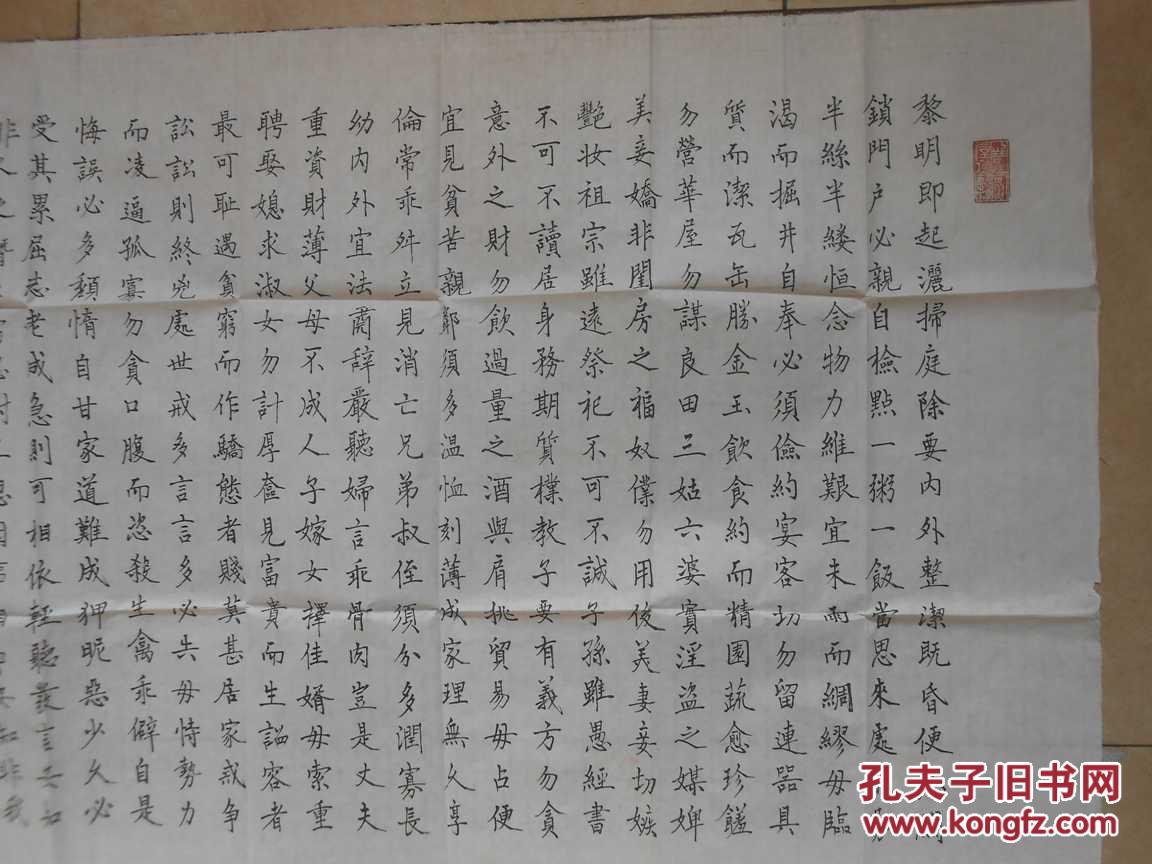 黎明即起灑掃庭除要內外整潔既昏便
鎖門戶必親自檢點一粥一飯當思來處
半絲半縷恒念物力維艱宜未雨而綢繆毋臨
渴而掘井自奉必須儉約宴客切勿留連器具
質而潔瓦缶勝金玉飲食約而精園蔬愈珍饈
勿營華屋勿謀良田三姑六婆實淫盜之媒婢
美妾嬌非閨房之福奴僕勿用俊美妻妾切嫉
艷妝祖宗雖遠祭祀不可不誠子孫雖愚經書
不可不讀居身務期質樸教子要有義方勿貪
意外之財勿飲過量之酒與肩挑貿易毋占便
宜見貧苦親鄰須多温恤刻薄成家理無久享
倫常乖舛立見消亡兄弟叔侄須分多潤寡長
幼內外宜法肅辞嚴聽婦言乖骨肉豈是丈夫
重資財薄父母不成人子嫁女擇佳婿毋索重
聘娶媳求淑女勿計厚奩見富貴而生諂容者
最可恥遇貧窮而作驕態者賤莫甚居家戒争
訟訟則終兇處世戒多言言多必失毋恃勢力
而凌逼孤寡勿貪口腹而恣殺生禽乖僻自是
悔誤必多頹惰自甘家道難成狎昵惡少久必
受其累屈志老成急則可相依輕聽發言安知
孔夫子旧书网
www.kongfz.com